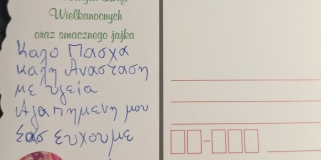 Wielkanocnych
oraz smacznego jajka
Καλο Πασχα
καλη Ανασταση
με υγεία
Αγαπημενη μου
σας ευχουμε